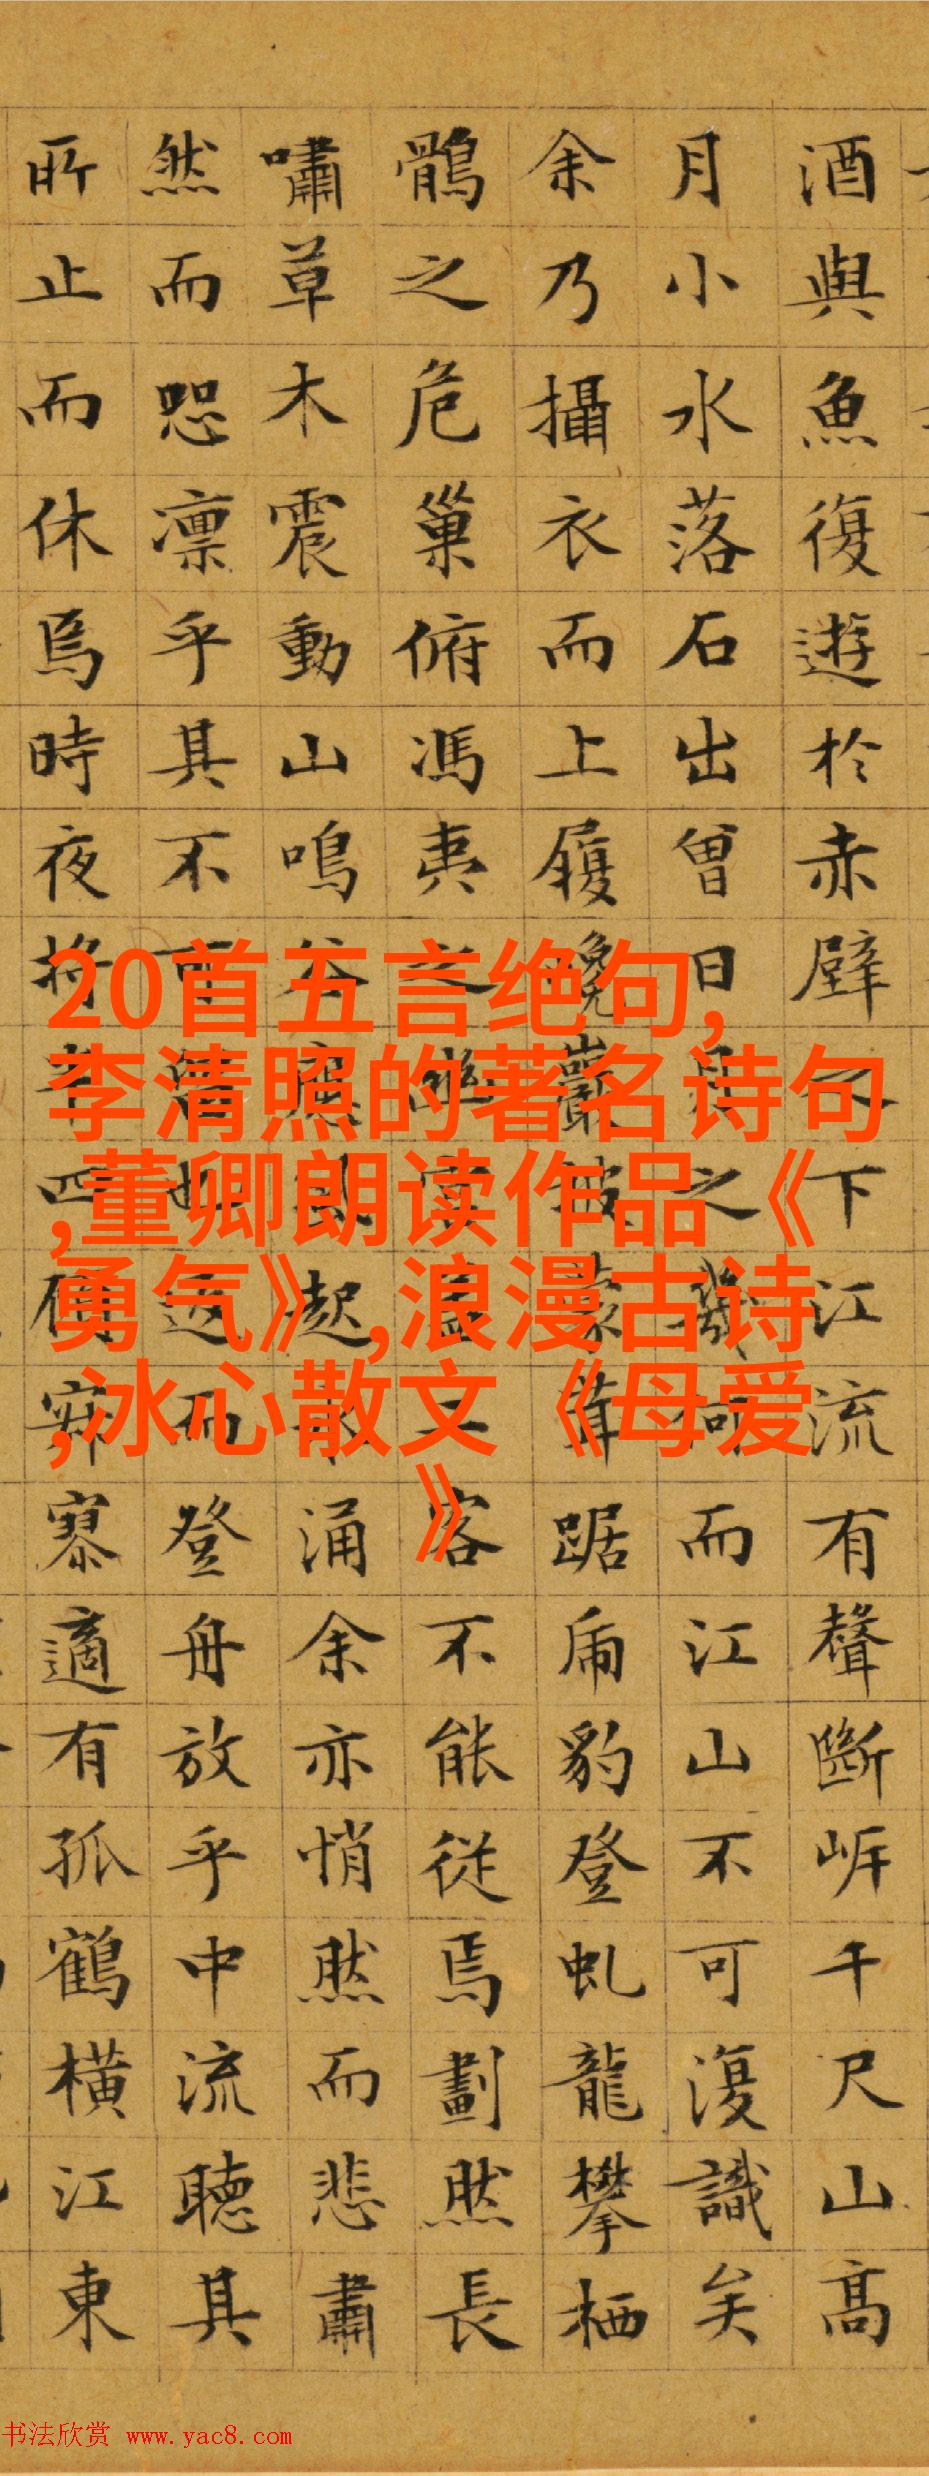 酒與魚復遊於赤壁之下江流有聲斷岸千尺山高
月小水落石出曾日月之幾何而江山不可復識矣
余乃攝衣而上履巉巖披蒙茸踞虎豹登虬龍攀栖
鶻之危巢俯馮夷之幽宮蓋二客不能從焉劃然長
嘯草木震動山鳴谷應風起水涌余亦悄然而悲肅
然而恐凛乎其不可留也返而登舟放乎中流聽其
所止而休焉時夜將半四顧寂寥適有孤鶴橫江東
20首五言绝句,
李清照的著名诗句
,董卿朗读作品《
勇气》,浪漫古诗
,冰心散文《母爱
》
书法欣赏 www.yac8.com